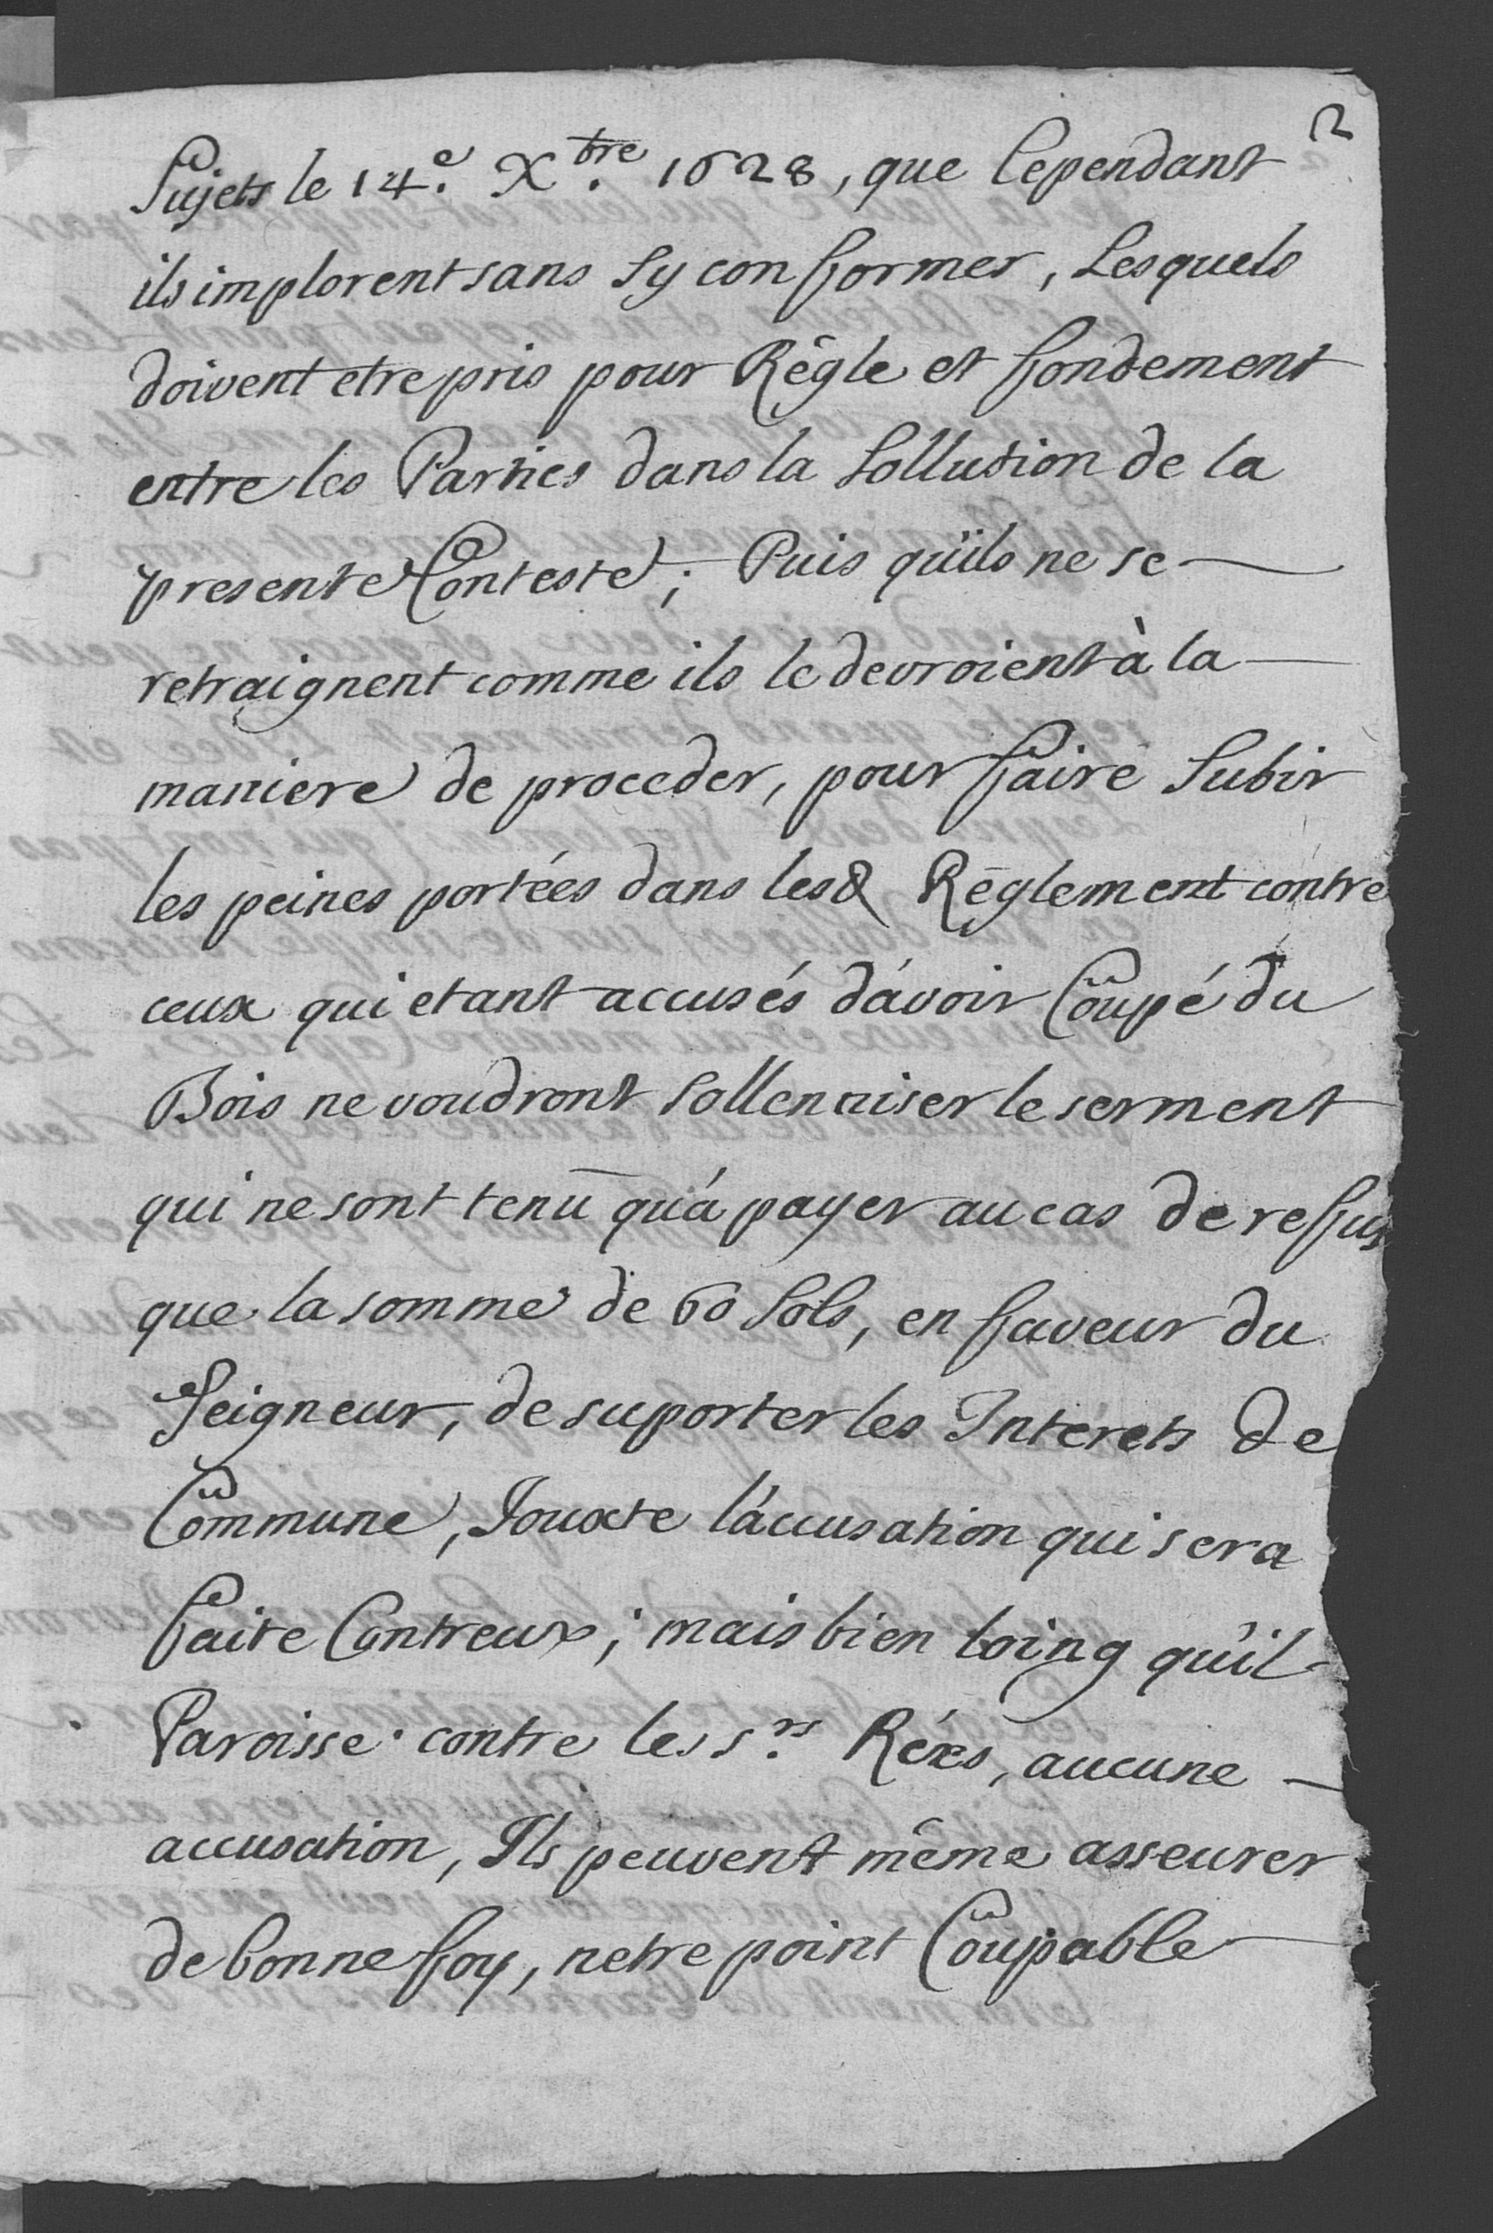 2
Sujets le 14.e Xbre. 1628, que Cependant
ils implorent sans Sy conformer, Lesquels
doivent etre pris pour Rêgle et fondement
entre les Parties dans la Sollution de la
presente Conteste; Puis qu'ils ne se
retraignent comme ils le devroient à la
maniere de proceder, pour faire Subir
les peines portées dans lesd Rêglement contre
ceux qui etant accusés d'avoir Coupé du
Bois ne voudront Sollenniser le serment
qui ne sont tenu qu'à payer au cas de reffus
que la somme de 60 Sols, en faveur du
Seigneur, de suporter les Interets de
Commune, Jouxte l'accusation qui sera
faite Contreux; mais bien loing qu'il
Paroisse contre les s.rs Réés, aucune
accusation, Ils peuvent même asseurer
de bonne foy, netre point Coupable